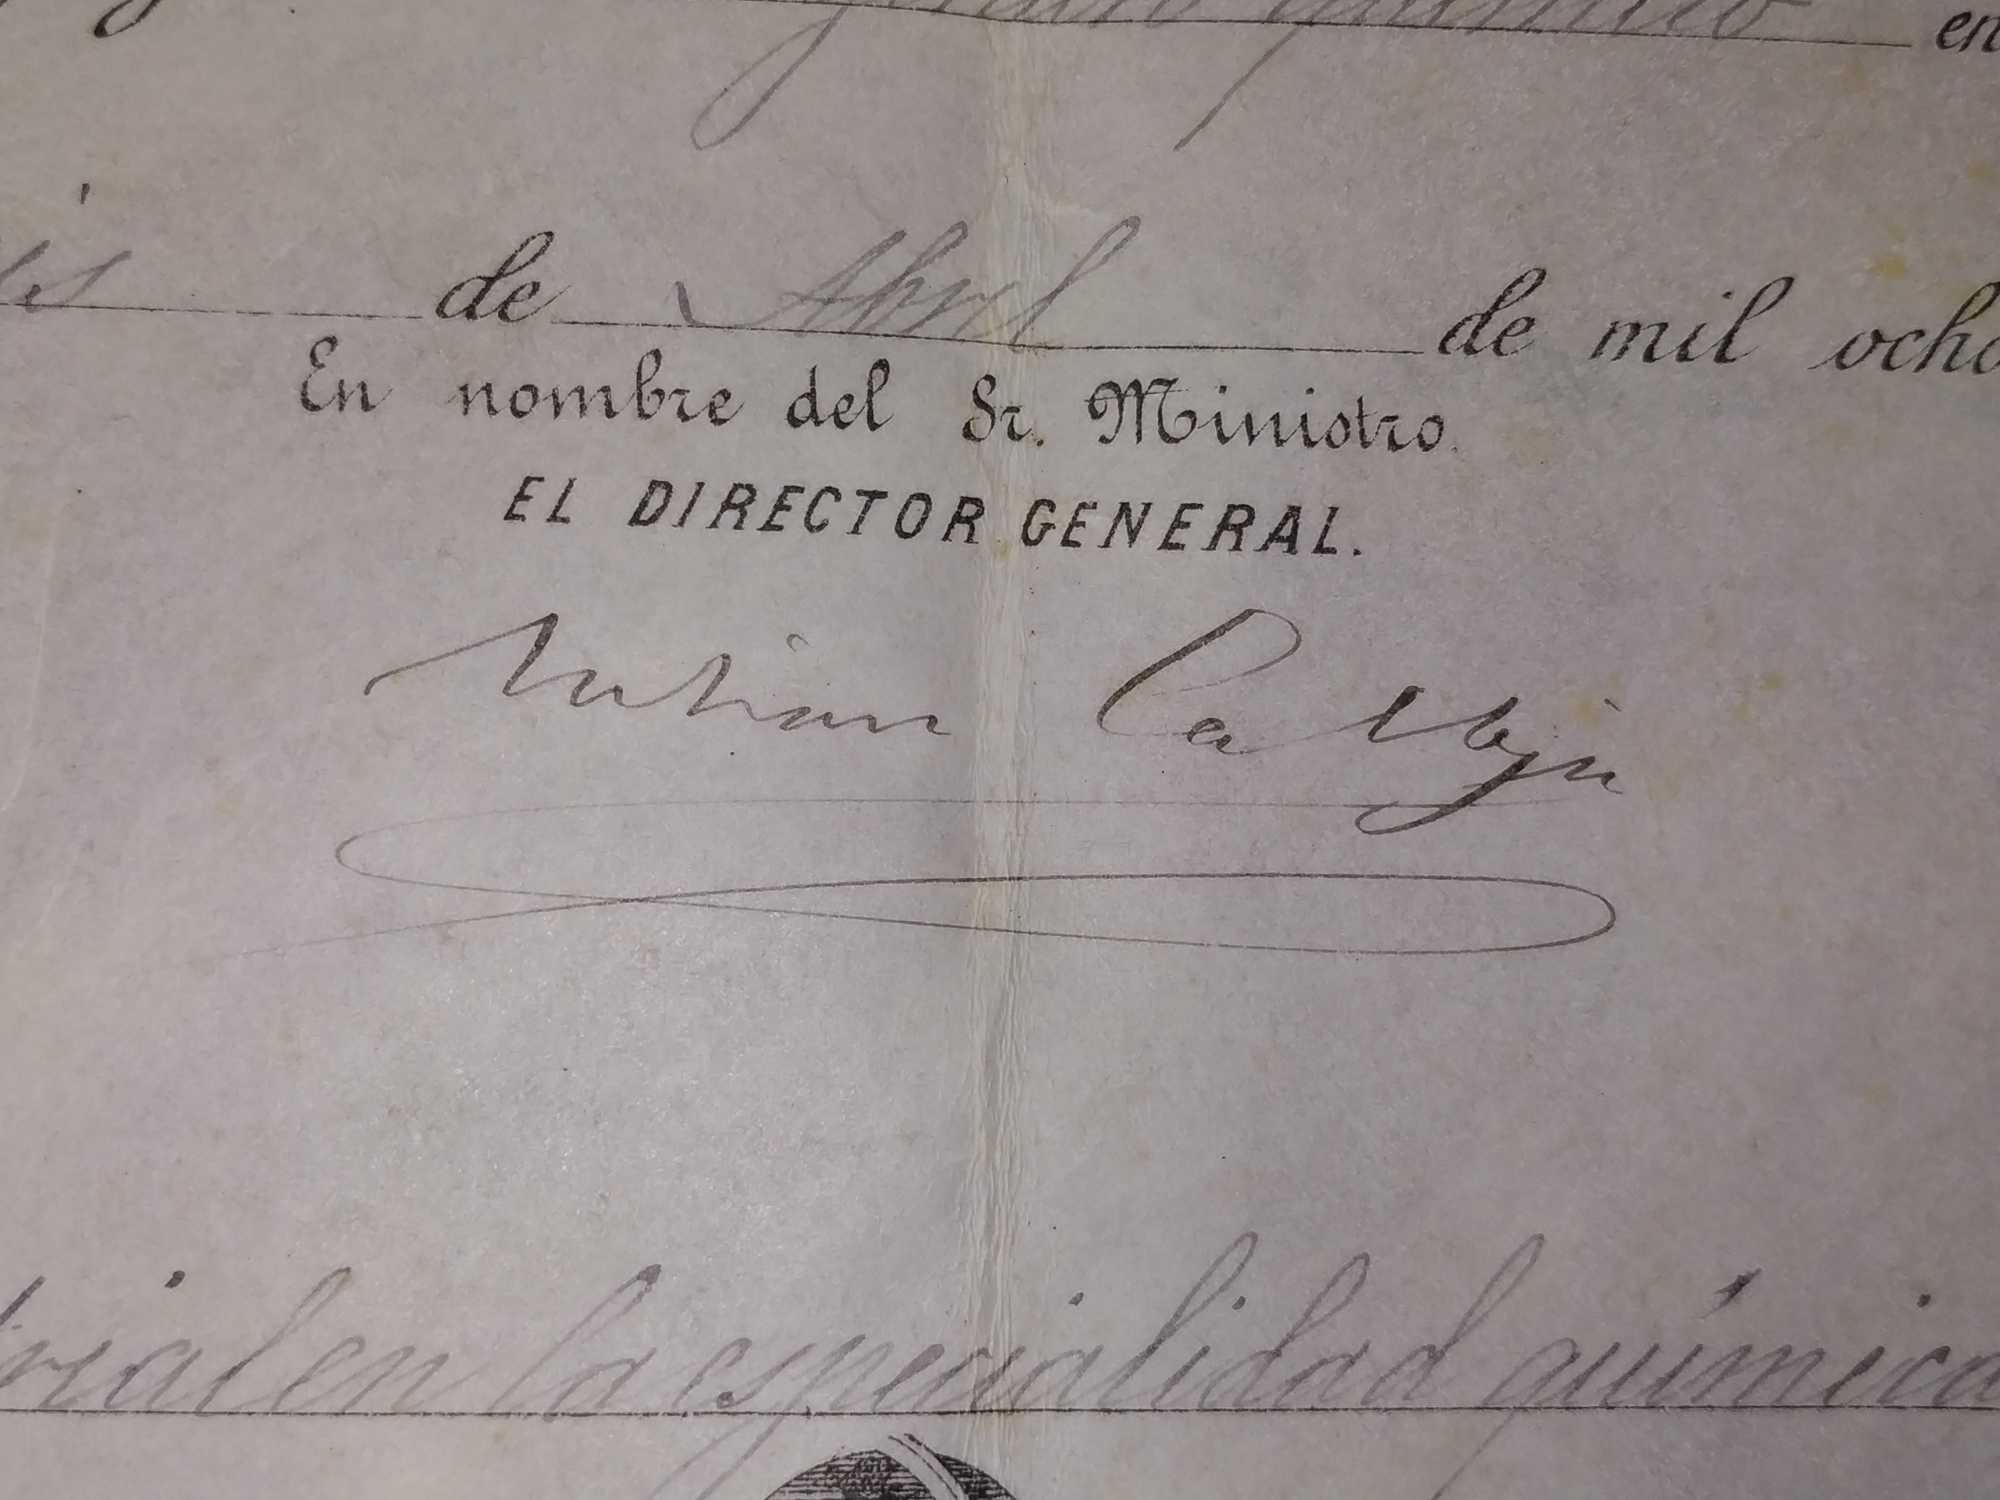 químico en
de Abril de mil ocho
En nombre del Sr. Ministro.
EL DIRECTOR GENERAL.
Julian Calleja
en la especialidad química